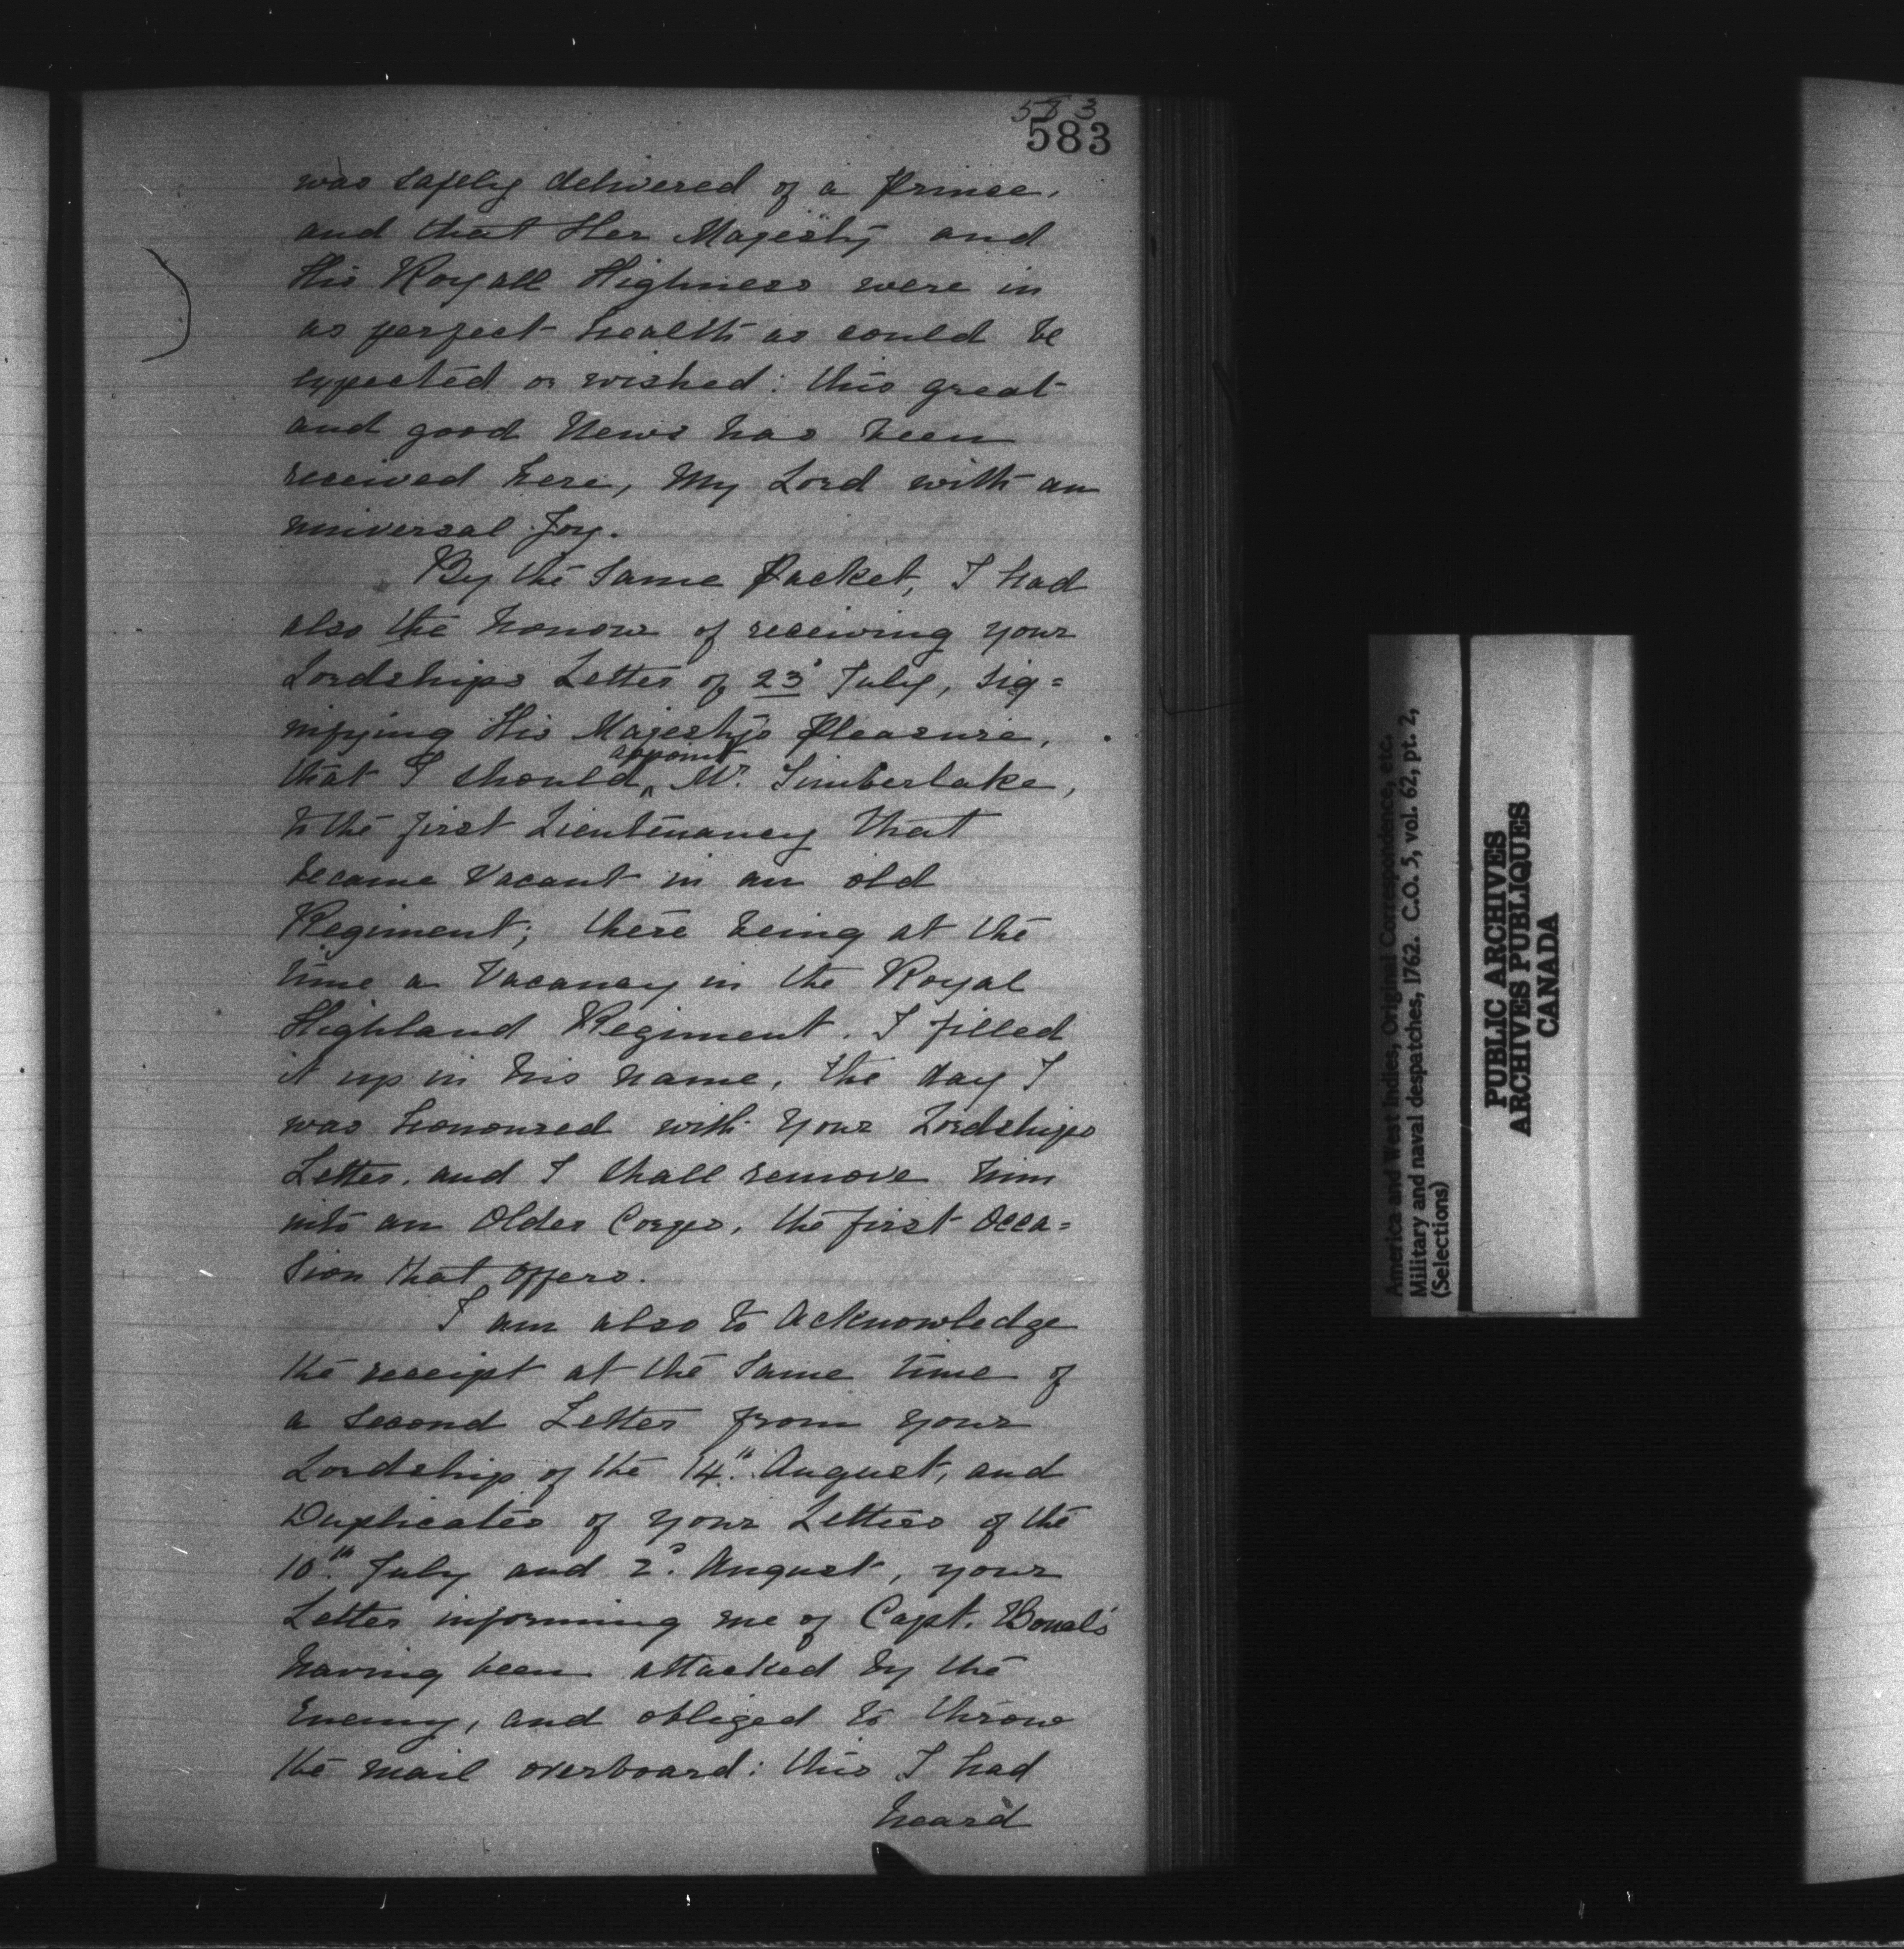 583
583
was safely delivered of a Prince,
and that Her Majesty and
His Royall Highness were in
as perfect health as could be
expected or wished: this great
and good News has been
received here, My Lord with an
universal Joy.
By the Same Packet, I had
also the honour of receiving your
Lordships Letter of 23d July, Sig=
nifying His Majesty's Pleasure,
that I should ^ appoint Mr. Timberlake,
to the first Lieutenancy that
became Vacant in an old
Regiment; there being at the
time a Vacancy in the Royal
Highland Regiment. I filled
it up in his name, the day I
was honoured with Your Lordships
Letter, and I shall remove him
into an Older Corps, the first Occa=
sion that offers.
I am also to acknowledge
the receipt at the Same time of
a Second Letter from Your
Lordship of the 14th. August, and
Duplicates of your Letters of the
10th. July and 2d. August, your
Letter informing me of Capt.
having been attacked by the
Enemy, and obliged to throw
the mail overboard: this I had
heard
America and West Indies, Original Correspondence, etc.
Military and naval despatches, 1762. C.O. 5, vol. 62, pt. 2,
(Selections)
PUBLIC ARCHIVES
ARCHIVES PUBLIQUES
CANADA